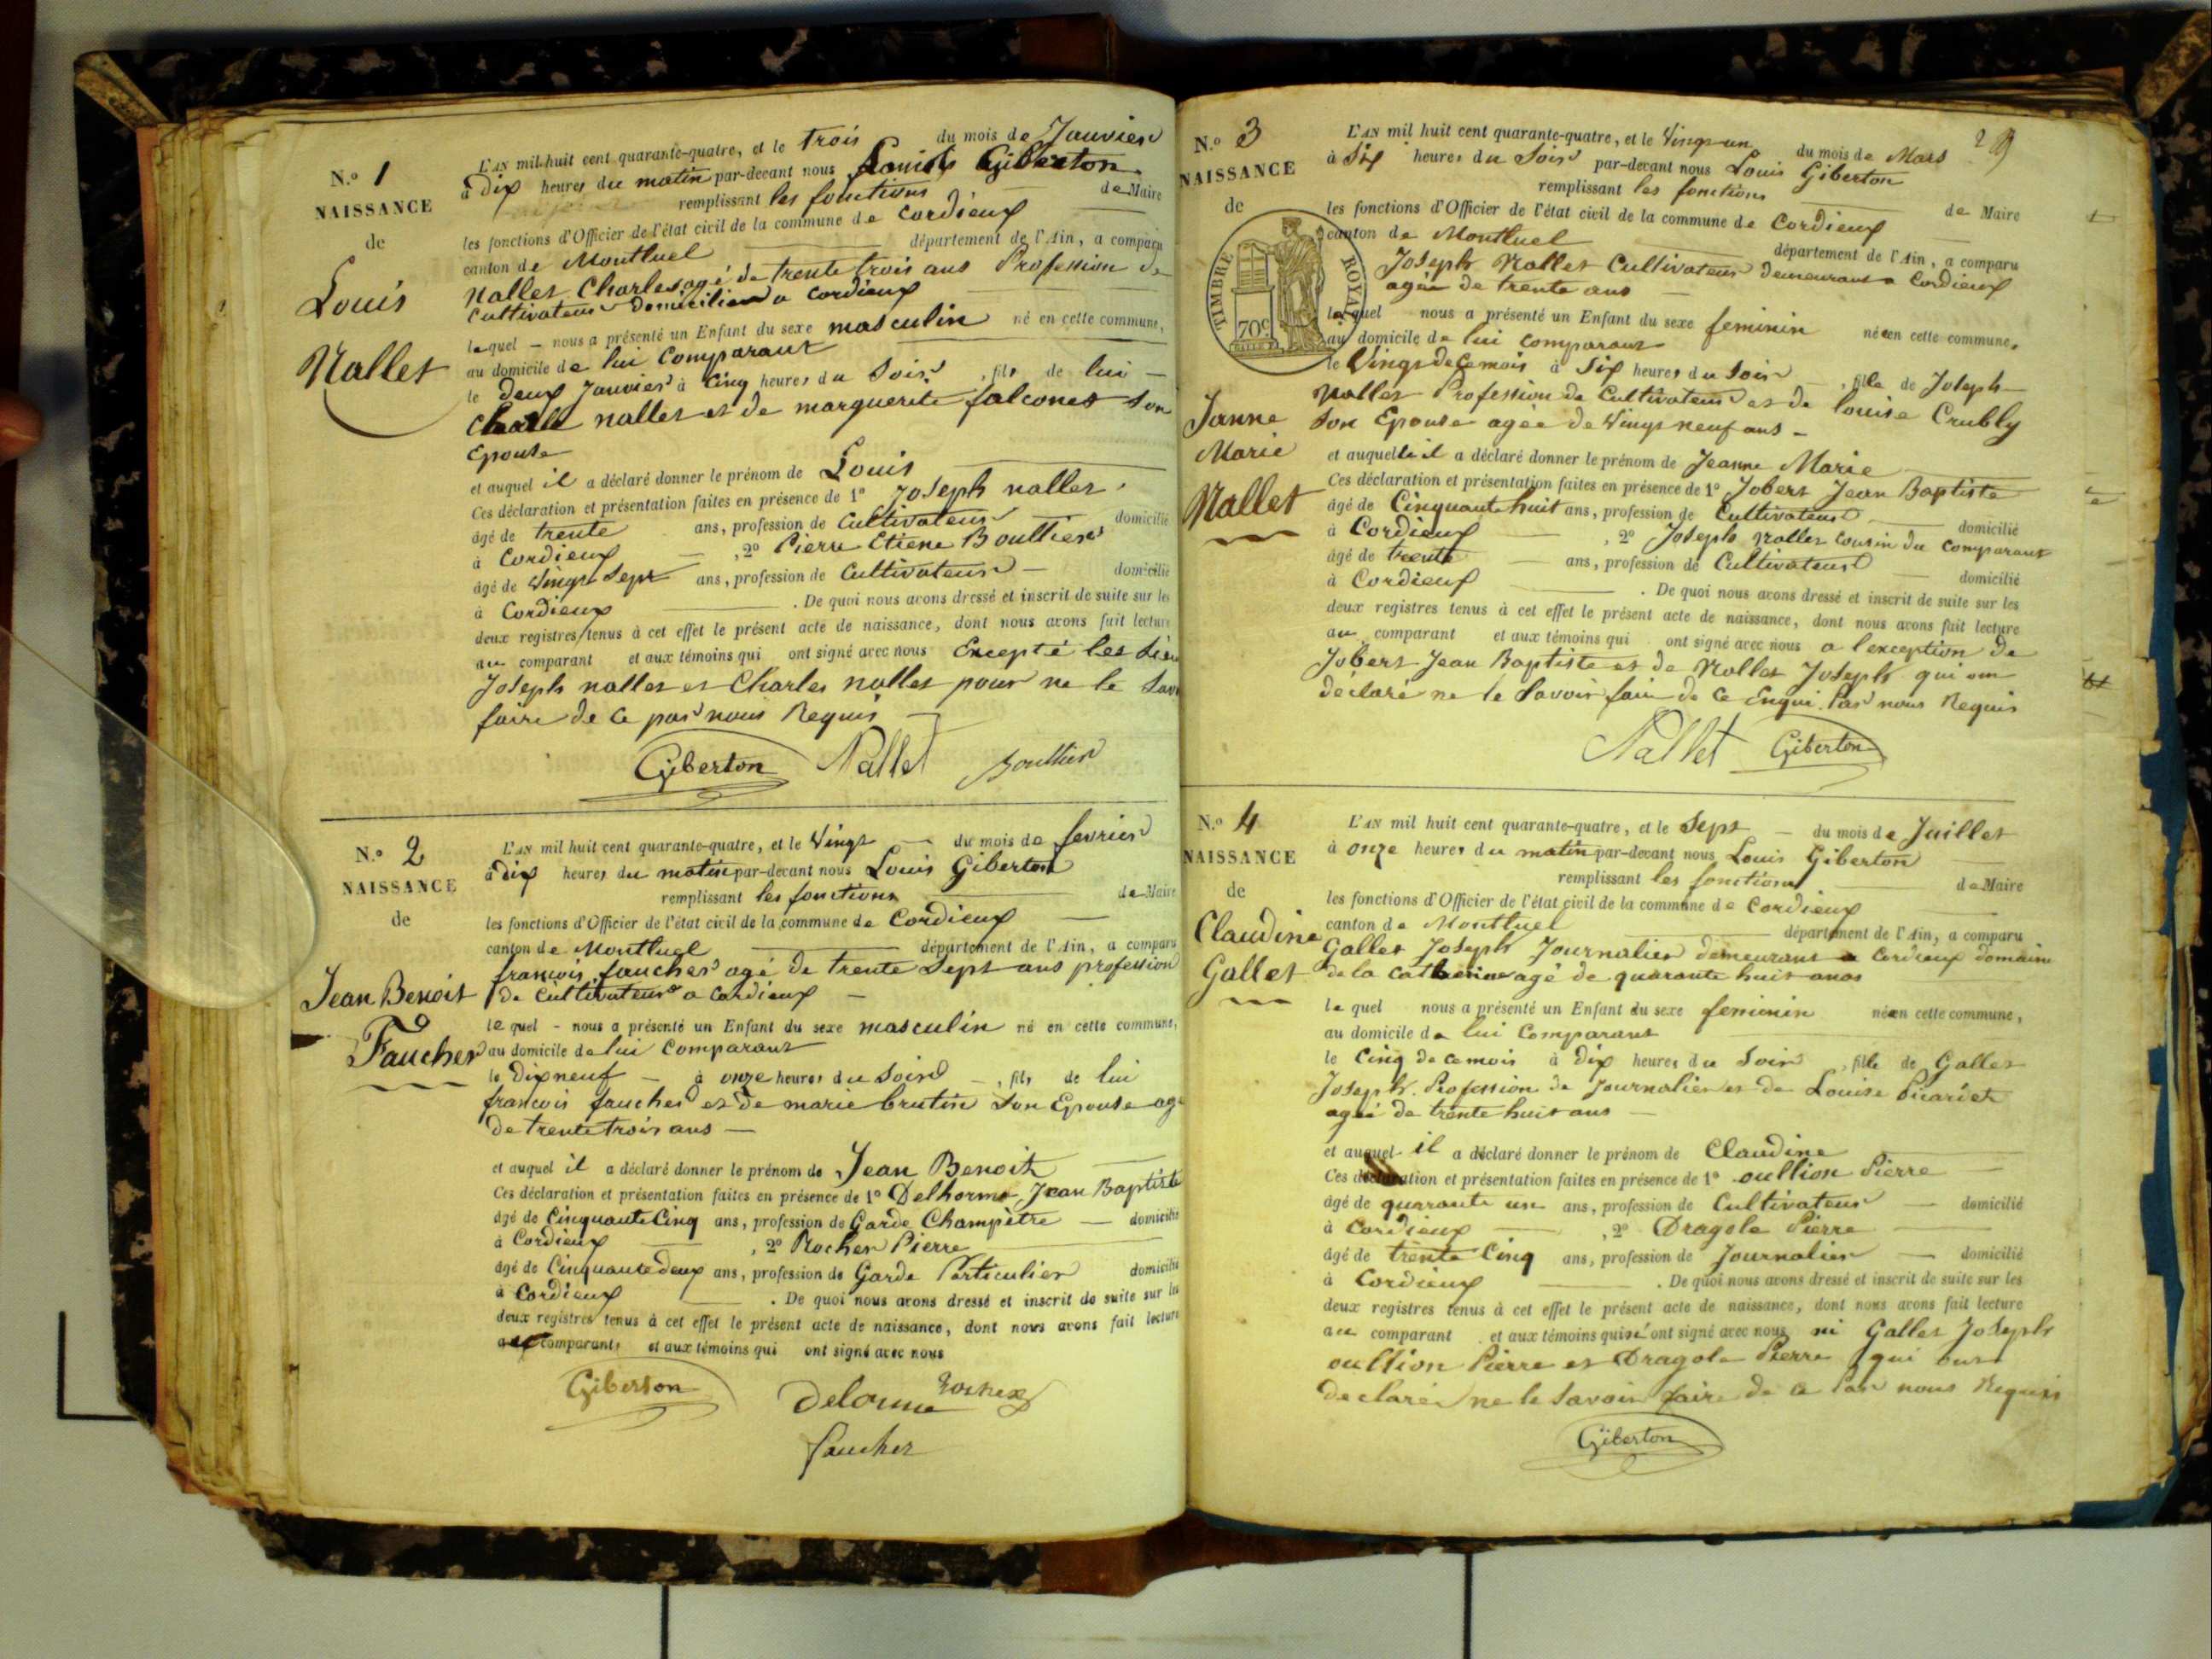 N.º 1
NAISSANCE
de
Louis
Nallet
L'AN mil huit cent quarante-quatre, et le trois du mois de Janvier
à Dix heures du matin par-devant nous Louis Giberton
remplissant les fonctions de Maire
les fonctions d'Officier de l'état civil de la commune de Cordieux
canton de Montluel département de l'Ain, a comparu
Nallet Charles agé de trente trois ans Profession de
Cultivateur domicilié a Cordieux
lequel nous a présenté un Enfant du sexe masculin né en cette commune,
au domicile de lui Comparant
le deux Janvier à Cinq heures du Soir, fils de lui
Charle nallet et de marguerite falconet Son
Epouse
et auquel il a déclaré donner le prénom de Louis
Ces déclaration et présentation faites en présence de 1º Joseph nallet
âgé de trente ans, profession de Cultivateur domicilié
à Cordieux, 2º Pierre Etiene Boullier
âgé de Vingt Sept ans, profession de Cultivateur domicilié
à Cordieux. De quoi nous avons dressé et inscrit de suite sur les
deux registres tenus à cet effet le présent acte de naissance, dont nous avons fait lecture
au comparant et aux témoins qui ont signé avec nous Excepté les
Joseph nallet et Charles nallet pour ne le
faire de ce par nous Requis
Giberton Nallet Boullier
N.º 2
NAISSANCE
de
Jean Benoit
Faucher
L'AN mil huit cent quarante-quatre, et le Vingt du mois de fevrier
à dix heures du matin par-devant nous Louis Giberton
remplissant les fonctions de Maire
les fonctions d'Officier de l'état civil de la commune de Cordieux
canton de Montluel département de l'Ain, a comparu
francois faucher agé de trente Sept ans profession
de Cultivateur a Cordieux
lequel nous a présenté un Enfant du sexe masculin né en cette commune,
au domicile de lui Comparant
le Dix neuf à onze heures du Soir, fils de lui
francois faucher et de marie brutin Son Epouse
de trente trois ans
et auquel il a déclaré donner le prénom de Jean Benoit
Ces déclaration et présentation faites en présence de 1º Delhorme Jean Baptiste
âgé de Cinquante Cinq ans, profession de Garde Champètre domicilié
à Cordieux, 2º Rocher Pierre
âgé de Cinquante deux ans, profession de Garde Particulier domicilié
à Cordieux. De quoi nous avons dressé et inscrit de suite sur les
deux registres tenus à cet effet le présent acte de naissance, dont nous avons fait lecture
aux comparants et aux témoins qui ont signé avec nous
Giberton Delorme Rocher
faucher
N.º 3
NAISSANCE
de
TIMBRE ROYAL
70c
Janne
Marie
Nallet
L'AN mil huit cent quarante-quatre, et le Vingt un du mois de Mars
à Six heures du Soir par-devant nous Louis Giberton
remplissant les fonctions de Maire
les fonctions d'Officier de l'état civil de la commune de Cordieux
canton de Montluel département de l'Ain, a comparu
Joseph Nallet Cultivateur demeurant a Cordieux
agée de trente ans
lequel nous a présenté un Enfant du sexe feminin née en cette commune,
au domicile de lui comparant
le Vingt de ce mois à Six heures du Soir, fille de Joseph
Nallet Profession de Cultivateur et de louise Crubly
Son Epouse agée de Vingt neuf ans
et auquelle il a déclaré donner le prénom de Jeanne Marie
Ces déclaration et présentation faites en présence de 1º Jobert Jean Baptiste
âgé de Cinquante huit ans, profession de Cultivateur domicilié
à Cordieux, 2º Joseph Nallet cousin du Comparant
âgé de trente ans, profession de Cultivateur domicilié
à Cordieux. De quoi nous avons dressé et inscrit de suite sur les
deux registres tenus à cet effet le présent acte de naissance, dont nous avons fait lecture
au comparant et aux témoins qui ont signé avec nous a l'exception de
Jobert Jean Baptiste et de Nallet Joseph qui
déclaré ne le Savoir faire de ce Enqui Par nous Requis
Nallet Giberton
N.º 4
NAISSANCE
de
Claudine
Gallet
L'AN mil huit cent quarante-quatre, et le Sept du mois de Juillet
à onze heures du matin par-devant nous Louis Giberton
remplissant les fonctions de Maire
les fonctions d'Officier de l'état civil de la commune de Cordieux
canton de Montluel département de l'Ain, a comparu
Gallet Joseph Journalier demeurant a Cordieux domaine
de la Catherine agé de quarante huit anas
lequel nous a présenté un Enfant du sexe feminin née en cette commune,
au domicile de lui Comparant
le Cinq de ce mois à Dix heures du Soir, fille de Gallet
Joseph Profession de Journalier et de Louise Picardet
agée de trente huit ans
et auquel il a déclaré donner le prénom de Claudine
Ces déclaration et présentation faites en présence de 1º oullion Pierre
âgé de quarante un ans, profession de Cultivateur domicilié
à Cordieux, 2º Dragole Pierre
âgé de trente Cinq ans, profession de Journalier domicilié
à Cordieux. De quoi nous avons dressé et inscrit de suite sur les
deux registres tenus à cet effet le présent acte de naissance, dont nous avons fait lecture
au comparant et aux témoins qui n'ont signé avec nous ni Gallet Joseph
oullion Pierre et Dragole Pierre qui ont
declaré ne le Savoir faire de ce Par nous Requis
Giberton